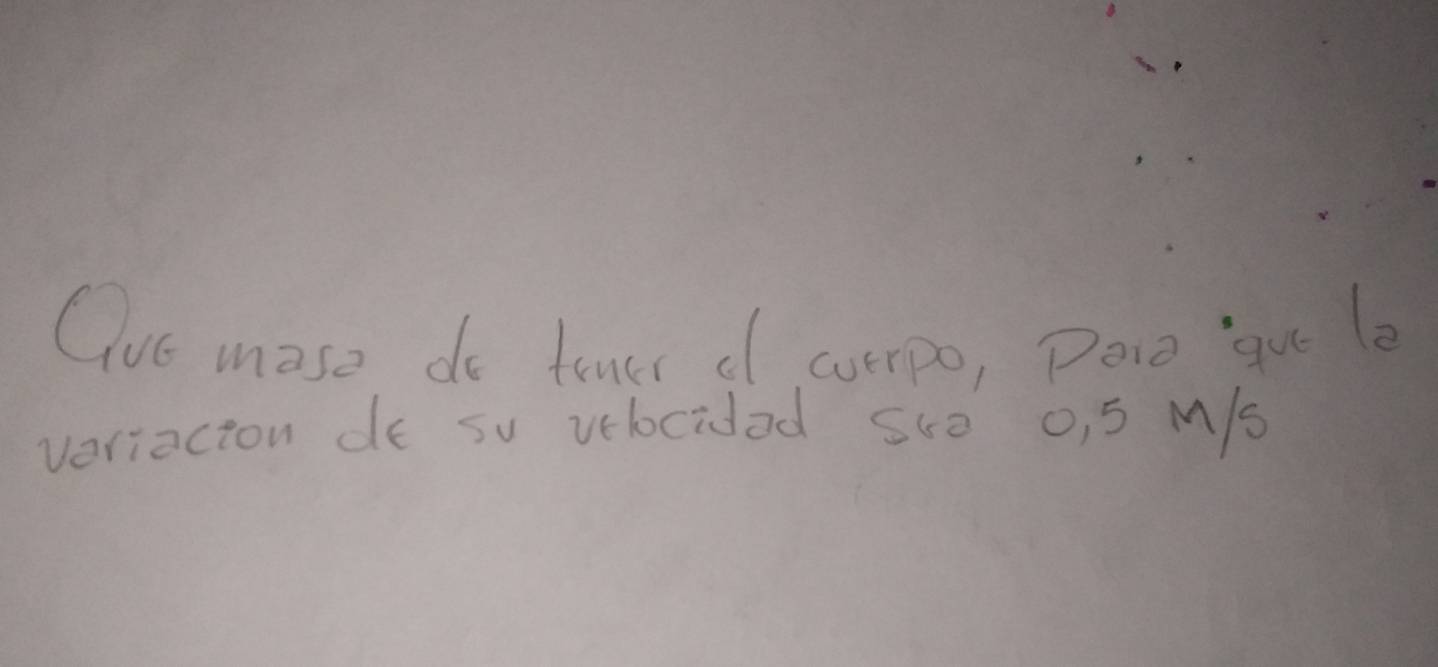 Que masa de tener el cuerpo, Para que la
variacion de su velocidad sea 0,5 M/S